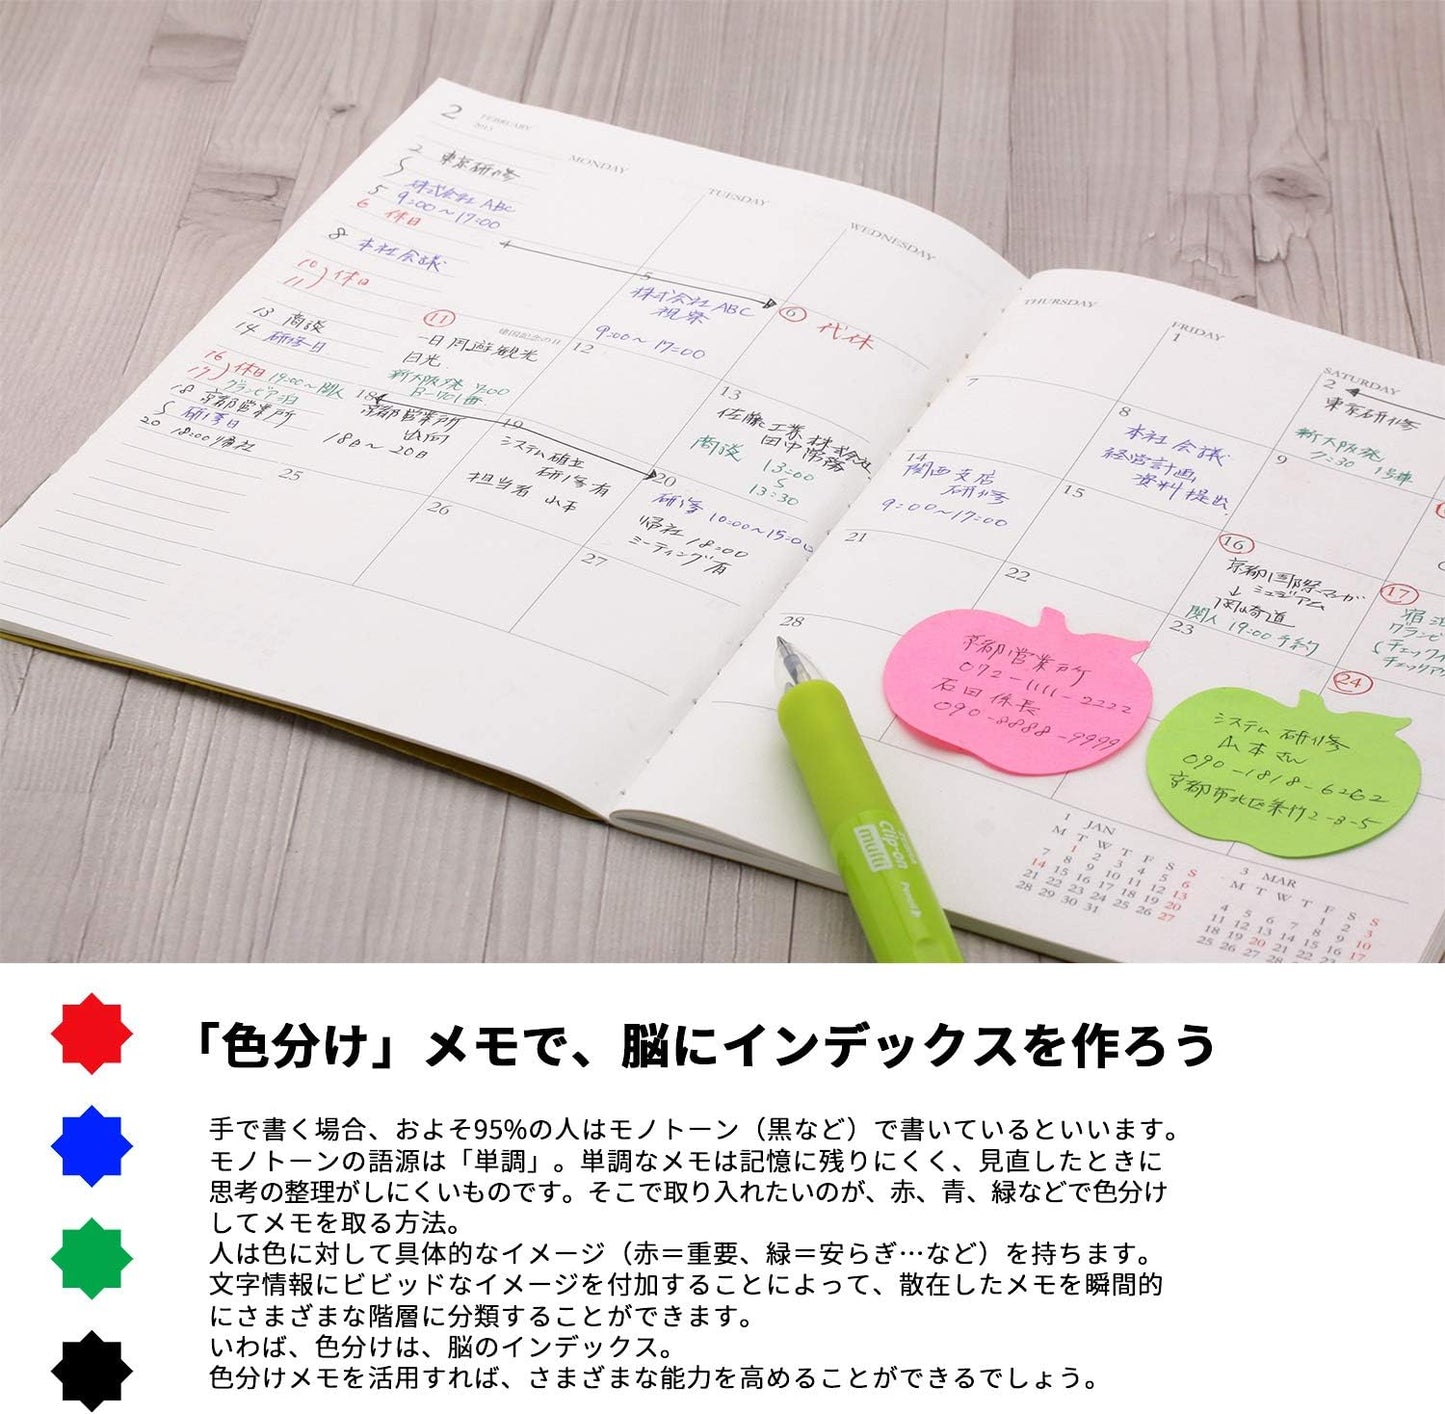 2 FEBRUARY
2013
MONDAY
TUESDAY
WEDNESDAY
THURSDAY
FRIDAY
SATURDAY
2 東京研修
5 株式会社 ABC
9:00〜17:00
6 休日
8 本社会議
10
11 休日
13 商談
14 研修日
16
17 休日 19:00〜関人
グランピア泊
18 京都営業所
研修日
20 18:00帰社
5
株式会社 ABC
視察
9:00〜17:00
6 代休
7
1
2
東京研修
新大阪発
7:30 1号車
8
本社会議
経営計画
資料提出
9
11
建国記念の日
一日周遊観光
日光
新大阪発 7:00
B-701番
12
13
佐藤工業株式会社
田中常務
商談 13:00
13:30
14
関西支店
研修
9:00〜17:00
15
16
京都国際マンガ
ミュージアム
↓
岡崎道
関人 19:00予約
17
18
京都営業所
出向
18日〜20日
19
システム確立
研修有
担当者 山本
20
研修 10:00〜15:00
帰社 18:00
ミーティング有
21
22
23
24
25
26
27
28
京都営業所
072-1111-2222
石田係長
090-8888-9999
システム研修
山本さん
090-1818-6262
京都市北区紫竹2-8-5
Clip-on
multi
1 JAN
M T W T F S S
1 2 3 4 5 6
7 8 9 10 11 12 13
14 15 16 17 18 19 20
21 22 23 24 25 26 27
28 29 30 31
3 MAR
M T W T F S S
1 2 3
4 5 6 7 8 9 10
11 12 13 14 15 16 17
18 19 20 21 22 23
25 26 27 28
「色分け」メモで、脳にインデックスを作ろう
手で書く場合、およそ95%の人はモノトーン（黒など）で書いているといいます。
モノトーンの語源は「単調」。単調なメモは記憶に残りにくく、見直したときに
思考の整理がしにくいものです。そこで取り入れたいのが、赤、青、緑などで色分け
してメモを取る方法。
人は色に対して具体的なイメージ（赤＝重要、緑＝安らぎ…など）を持ちます。
文字情報にビビッドなイメージを付加することによって、散在したメモを瞬間的
にさまざまな階層に分類することができます。
いわば、色分けは、脳のインデックス。
色分けメモを活用すれば、さまざまな能力を高めることができるでしょう。